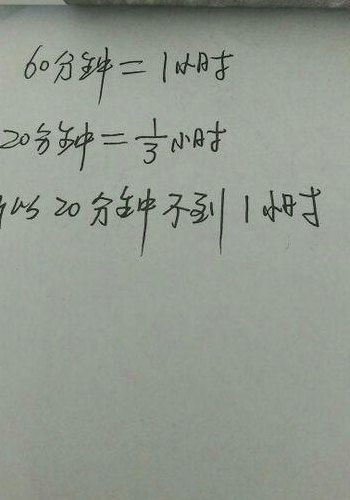 60分钟=1小时
20分钟=1/3小时
所以20分钟不到1小时